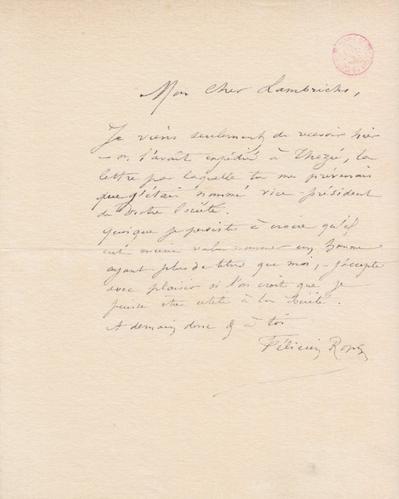 Mon Cher Lambrichs,
Je viens seulement de recevoir hier
– on l'avait expédié à Thozée, la
lettre par laquelle tu me prévenais
que j'étais nommé vice-président
de Notre Société.
Quoique je persiste à croire qu'il
eut mieux valu nommer un homme
ayant plus de titres que moi, – j'accepte
avec plaisir si l'on croit que je
puisse être utile à la Société.
A demain donc & à toi
Félicien Rops